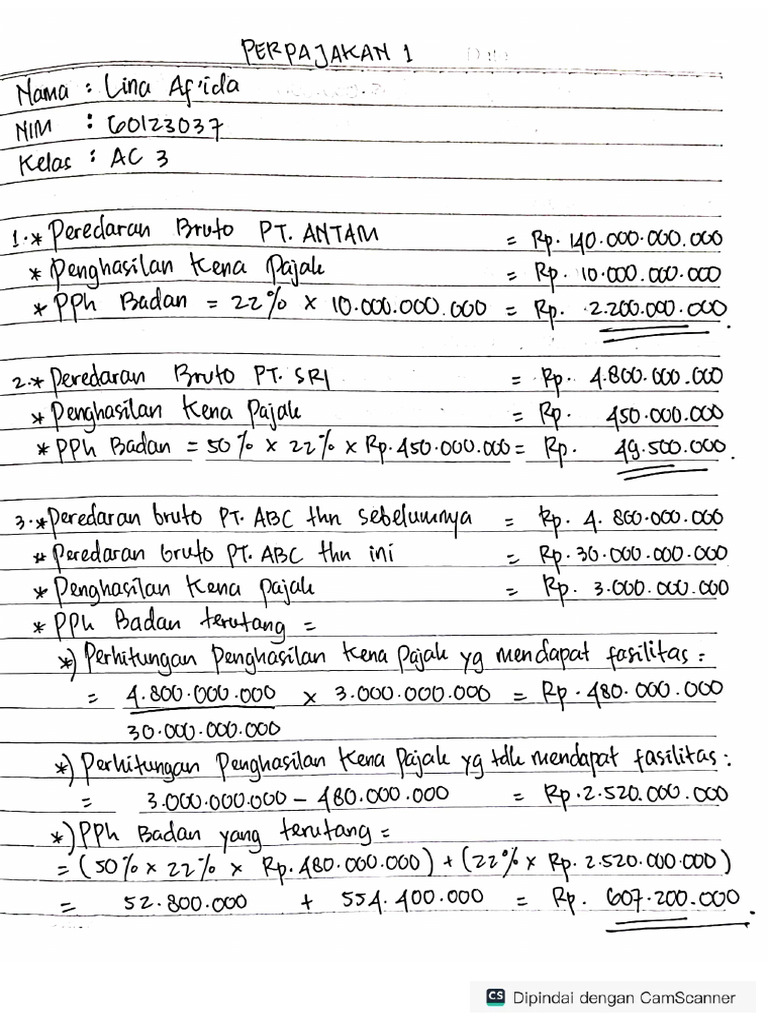 PERPAJAKAN 1
Nama : Lina Af'ida
NIM : 60123037
Kelas : AC 3
1.* Peredaran Bruto PT. ANTAM = Rp. 140.000.000.000
* Penghasilan Kena Pajak = Rp. 10.000.000.000
* PPh Badan = 22% x 10.000.000.000 = Rp. 2.200.000.000.
2.* Peredaran Bruto PT. SRI = Rp. 4.800.000.000
* Penghasilan Kena Pajak = Rp. 450.000.000
* PPh Badan = 50% x 22% x Rp.450.000.000 = Rp. 49.500.000.
3.* Peredaran bruto PT. ABC thn sebelumnya = Rp. 4.800.000.000
* Peredaran bruto PT. ABC thn ini = Rp. 30.000.000.000
* Penghasilan Kena pajak = Rp. 3.000.000.000
* PPh Badan terutang =
*) Perhitungan Penghasilan Kena Pajak yg mendapat fasilitas :
= 4.800.000.000 x 3.000.000.000 = Rp. 480.000.000
30.000.000.000
*) Perhitungan Penghasilan Kena Pajak yg tdk mendapat fasilitas :
= 3.000.000.000 - 480.000.000 = Rp. 2.520.000.000
*) PPh Badan yang terutang =
= (50% x 22% x Rp. 480.000.000) + (22% x Rp. 2.520.000.000)
= 52.800.000 + 554.400.000 = Rp. 607.200.000.
CS Dipindai dengan CamScanner